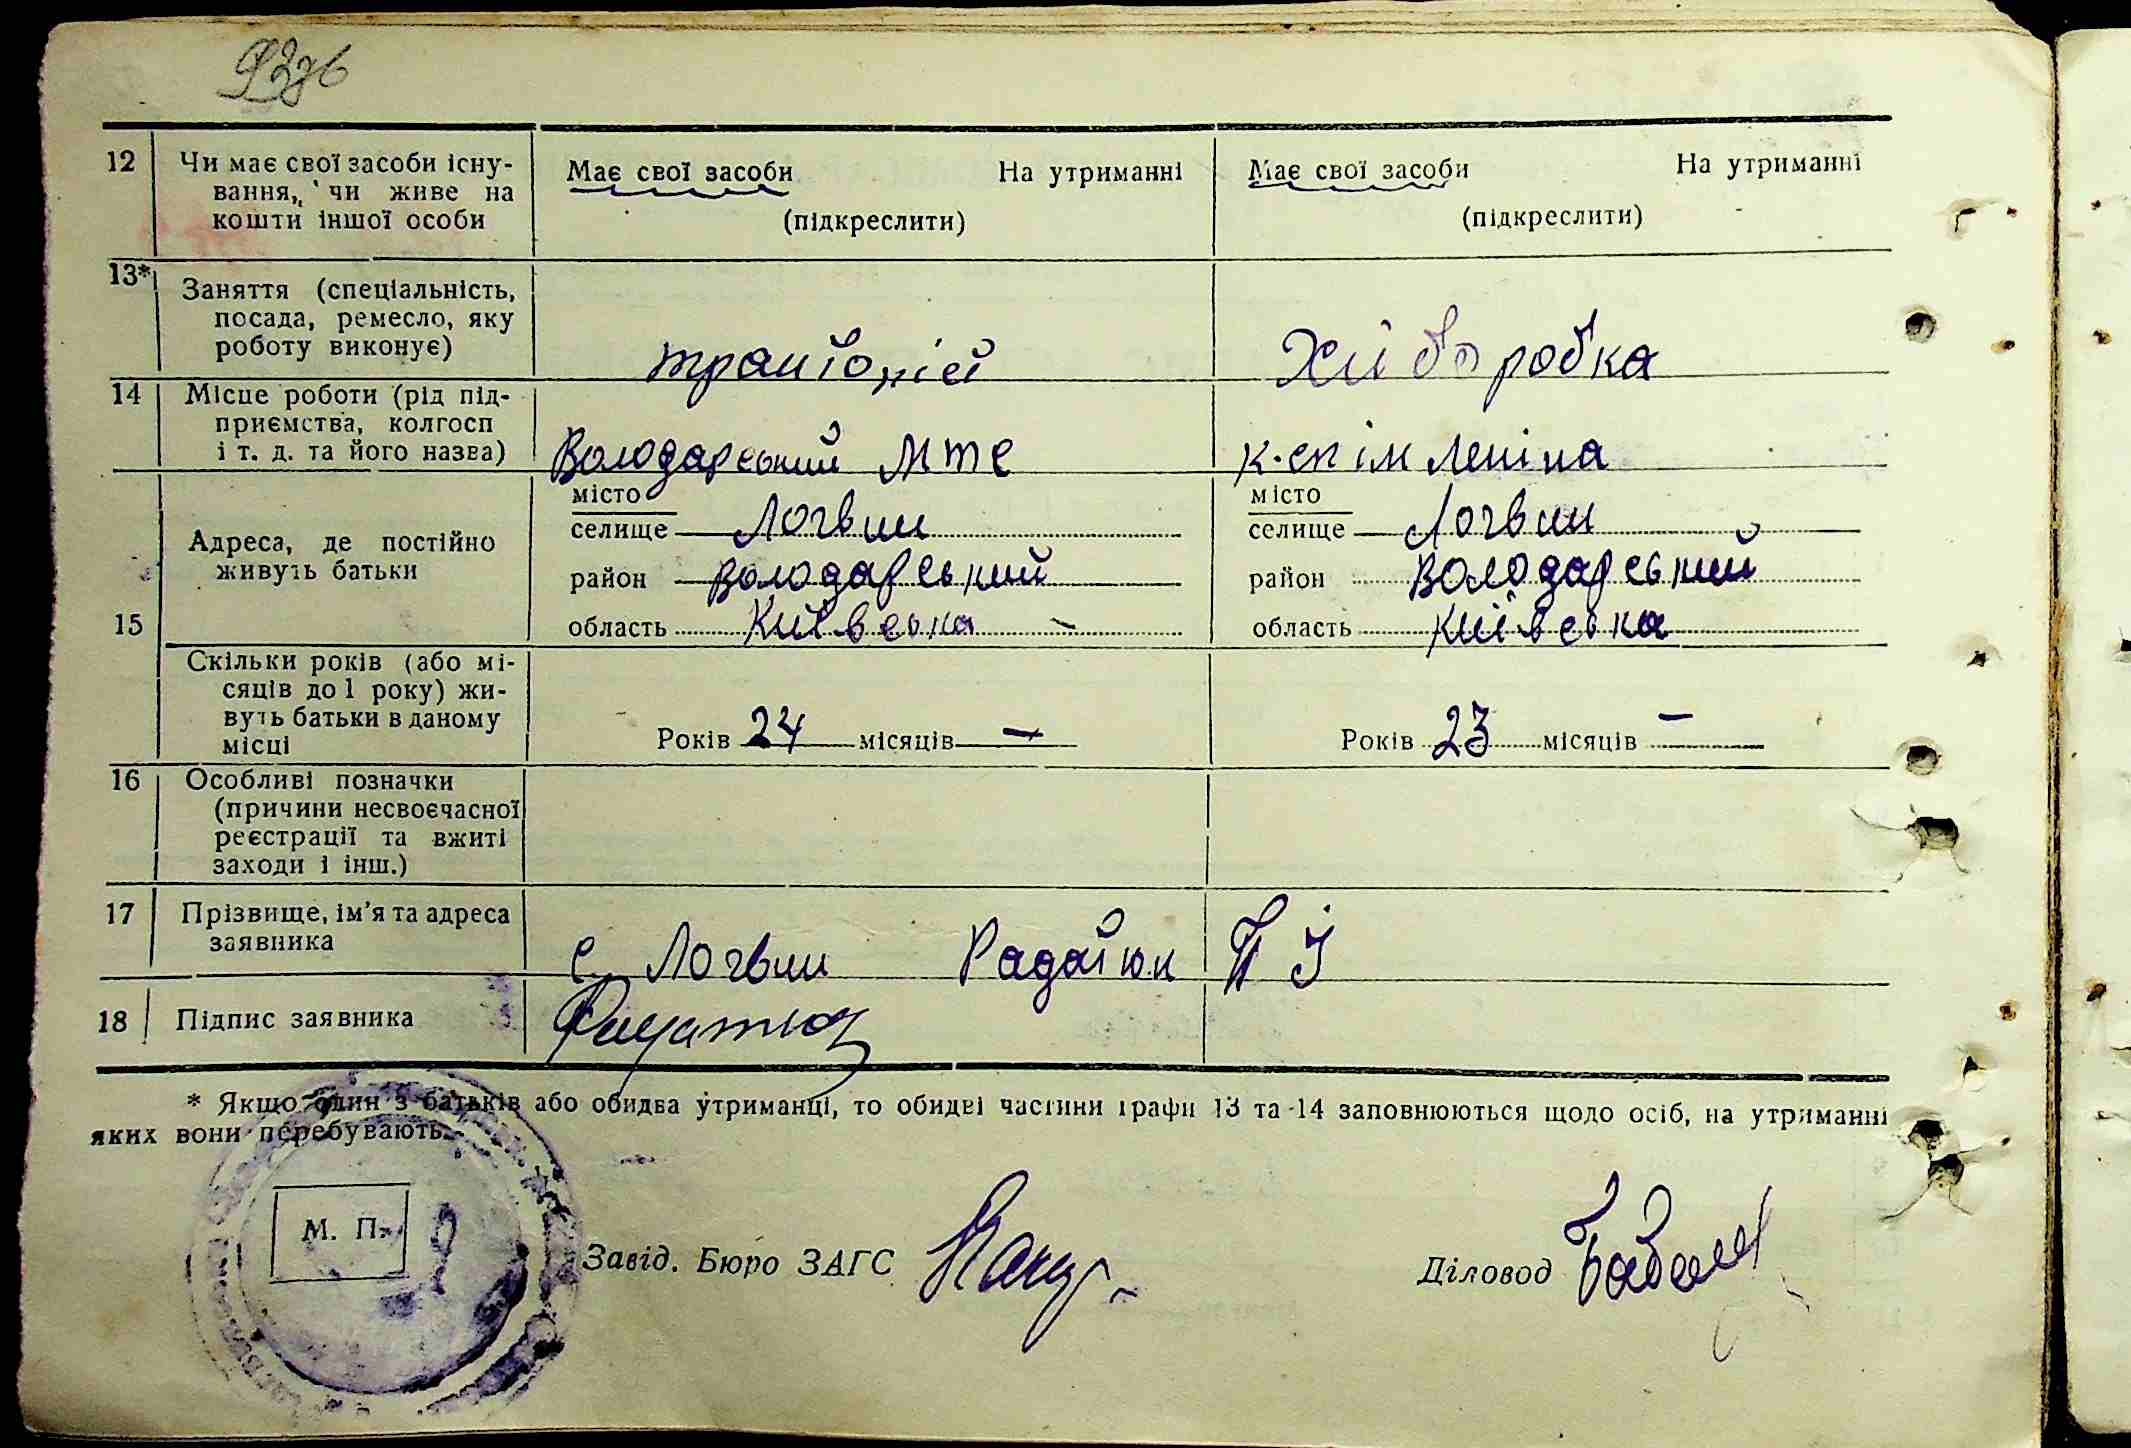 12 Чи має свої засоби існу- Має свої засоби На утриманні Має свої засоби На утриманні
вання, чи живе на
кошти іншої особи (підкреслити) (підкреслити)
13* Заняття (спеціальність,
посада, ремесло, яку
роботу виконує) Хліборобка
14 Місце роботи (рід під-
приємства, колгосп
і т. д. та його назва) Володарський МТС к-сп ім Леніна
місто місто
селище Логвин селище Логвин
Адреса, де постійно
живуть батьки район Володарський район Володарський
15 область Київська область Київська
Скільки років (або мі-
сяців до 1 року) жи-
вуть батьки в даному
місці Років 24 місяців — Років 23 місяців —
16 Особливі позначки
(причини несвоєчасної
реєстрації та вжиті
заходи і інш.)
17 Прізвище, ім'я та адреса
заявника с. Логвин П І
18 Підпис заявника
* Якщо один з батьків або обидва утриманці, то обидві частини графи 13 та 14 заповнюються щодо осіб, на утриманні
яких вони перебувають.
М. П.
Завід. Бюро ЗАГС Діловод